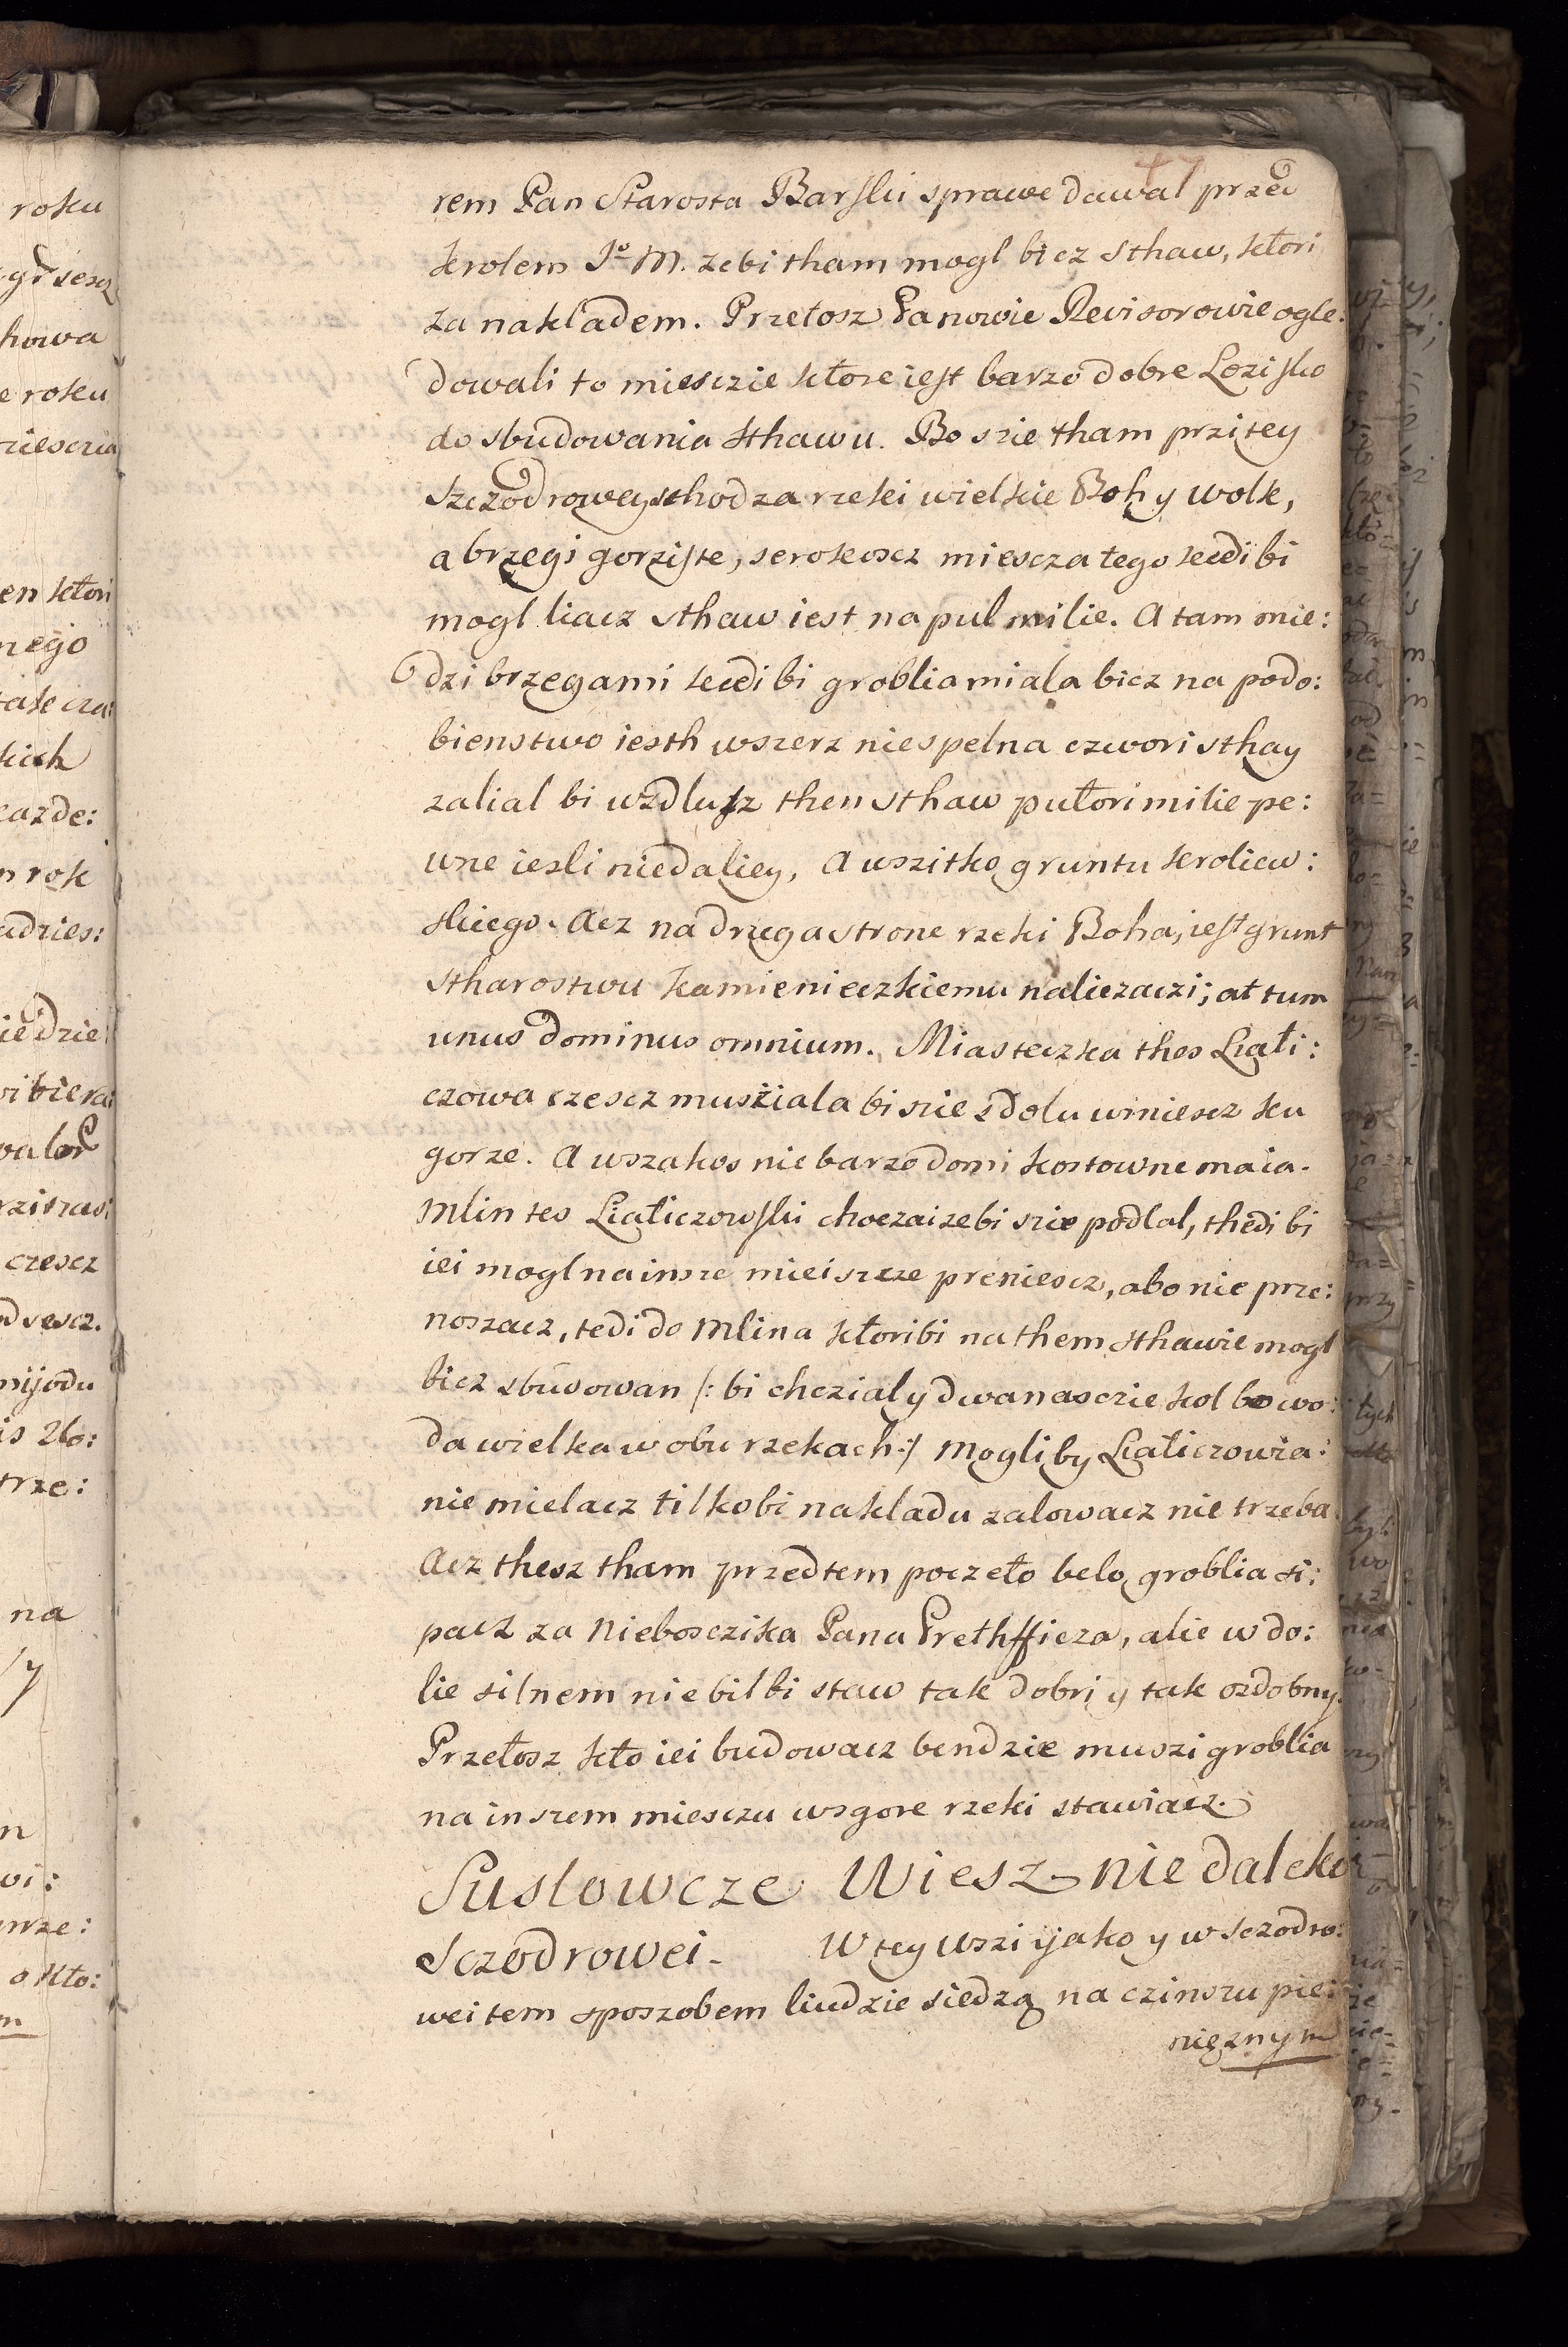 47
rem Pan Starosta Barski sprawe dawal przed
krolem Jo M. zebi tham mogl bicz sthaw, ktori
za nakladem. Przetosz Panowie Revisorowie ogle:
dowali to miesczie ktore iest barzo dobre Lozisko
do sbudowania sthawu. Bo szie tham przi tey
Szczodrowey schodza rzeki wielkie Boh y wolk,
a brzegi gorziste, serokoscz miescza tego kedi bi
mogl liacz sthaw iest na pul milie. A tam mie:
dzi brzegami kedi bi groblia miala bicz na podo:
bienstwo iesth wszerz niespelna czwori sthay
zalial bi wzdlusz then sthaw pultori milie pe:
wne iesli niedaliey, A wszitko gruntu kroliew:
skiego. Acz na druga strone rzeki Boha, iest grunt
stharostwu kamienieczkiemu naliezaczi; at tum
unus dominus omnium. Miasteczka thes Liati:
czowa czescz musziala bi szie zdolu wniescz ku
gorze. A wszakos nie barzo domi kostowne maia.
Mlin tes Liaticzowski choczai zebi szie podlal, thedi bi
iei mogl na insze mieiscze preniescz, abo nie prze:
noszacz, tedi do Mlina ktori bi na them sthawie mogl
bicz sbudowan /: bi chczial y dwanasczie kol bo wo:
da wielka w obu rzekach :/ mogli by Liaticzowia:
nie mielacz tilko bi nakladu zalowacz nie trzeba.
Acz thesz tham przedtem poczeto belo groblia si:
pacz za Nieboszczika Pana Prethfficza, alie w do:
lie silnem nie bil bi staw tak dobri y tak ozdobny.
Przetosz kto iei budowacz bendzie muszi groblia
na inszem miesczu wsgore rzeki stawiacz.
Suslowcze Wiesz niedaleko
Sczodrowei. W tey wszi ijako y w Sczodro:
wei tem sposzobem liudzie siedzą na czinszu pie:
nięznym